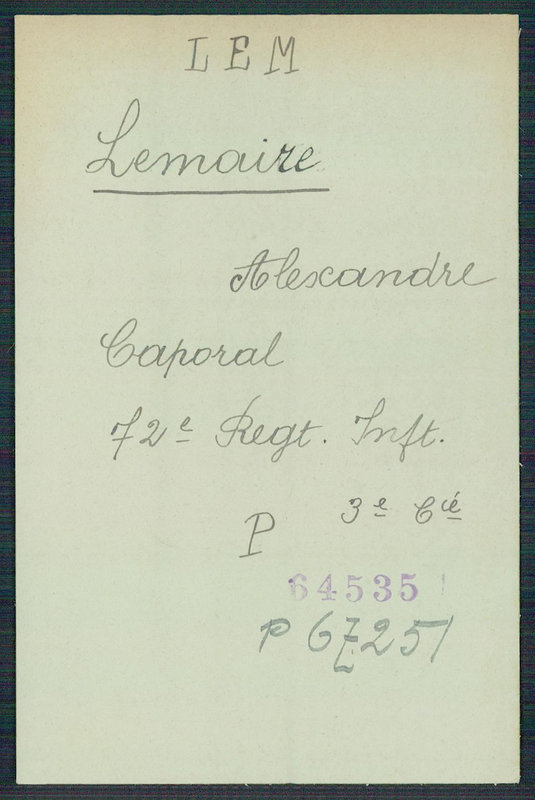 LEM
Lemaire
Alexandre
Caporal
72e Regt. Inft.
3e Cie
P
64535
P 67251